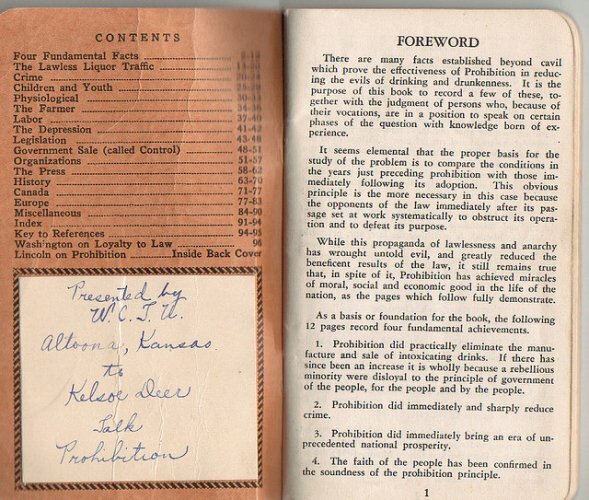 CONTENTS
Four Fundamental Facts
The Lawless Liquor Traffic
Crime
Children and Youth
Physiological
The Farmer
Labor 37-40
The Depression 41-42
Legislation 43-48
Government Sale (called Control) 48-51
Organizations 51-57
The Press 58-62
History 63-70
Canada 71-77
Europe 77-83
Miscellaneous 84-90
Index 91-94
Key to References 94-95
Washington on Loyalty to Law 96
Lincoln on Prohibition Inside Back Cover
Presented by
W.C.T.U.
Altoona, Kansas
to
Kelsoe Deer
Talk
Prohibition
FOREWORD
There are many facts established beyond cavil
which prove the effectiveness of Prohibition in reduc-
ing the evils of drinking and drunkenness. It is the
purpose of this book to record a few of these, to-
gether with the judgment of persons who, because of
their vocations, are in a position to speak on certain
phases of the question with knowledge born of ex-
perience.
It seems elemental that the proper basis for the
study of the problem is to compare the conditions in
the years just preceding prohibition with those im-
mediately following its adoption. This obvious
principle is the more necessary in this case because
the opponents of the law immediately after its pas-
sage set at work systematically to obstruct its opera-
tion and to defeat its purpose.
While this propaganda of lawlessness and anarchy
has wrought untold evil, and greatly reduced the
beneficent results of the law, it still remains true
that, in spite of it, Prohibition has achieved miracles
of moral, social and economic good in the life of the
nation, as the pages which follow fully demonstrate.
As a basis or foundation for the book, the following
12 pages record four fundamental achievements.
1. Prohibition did practically eliminate the manu-
facture and sale of intoxicating drinks. If there has
since been an increase it is wholly because a rebellious
minority were disloyal to the principle of government
of the people, for the people and by the people.
2. Prohibition did immediately and sharply reduce
crime.
3. Prohibition did immediately bring an era of un-
precedented national prosperity.
4. The faith of the people has been confirmed in
the soundness of the prohibition principle.
1